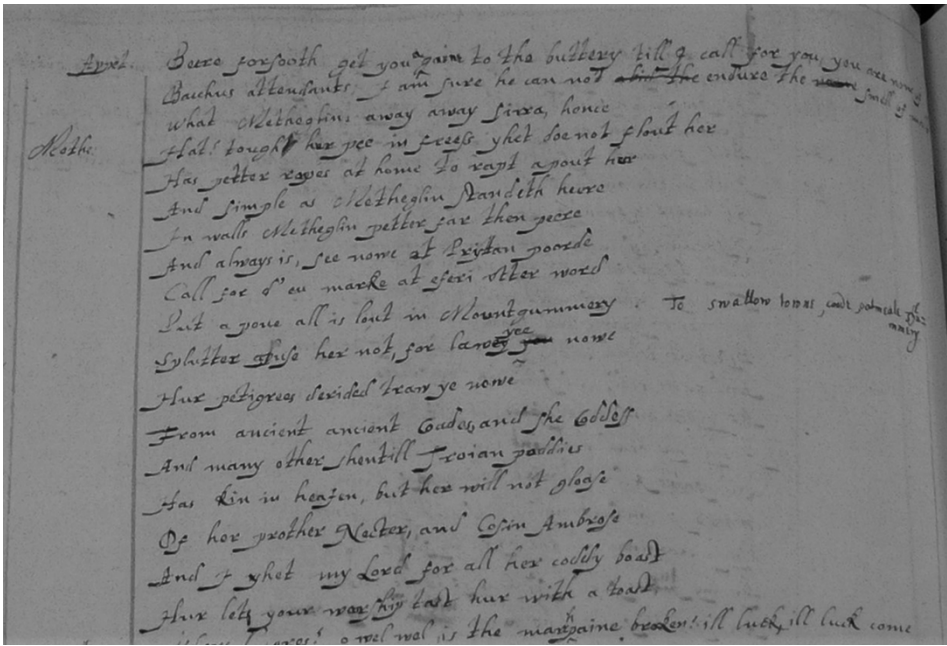 Appet. Beere forsooth get you againe to the buttery till I call for you, you are none of
Bacchus attendants, I am sure he can not endure the smell of
what Metheglin: away away sirra, hence
Methe: Hat! tough her pee in freese yhet doe not flout her
Has petter ropes at home to rapt apout her
And simple as Metheglin standeth heere
In walls Metheglin petter far then peere
And always is, see nowe at Pryttan poorde
Call for d'eu marke at eferi otter word
Put a pove all is lout in Mountgummery. To swallow towns,
Splutter abuse her not, for lawe yee nowe
Hur petigrees derided traw ye nowe
From ancient ancient Coades, and she Goddess
And many other shentill Troian poddies
Has kin in heafen, but her will not gloase
Of her prother Necter, and Cosin Ambrose
And I yhet my Lord for all her coddy boast
Hur lets your worship tast hur with a toast
owel wel is the marchpaine broken! ill luck, ill luck come